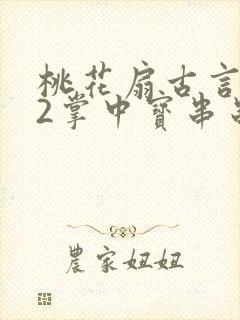 桃花扇古言
2掌中寶串
農家妞妞